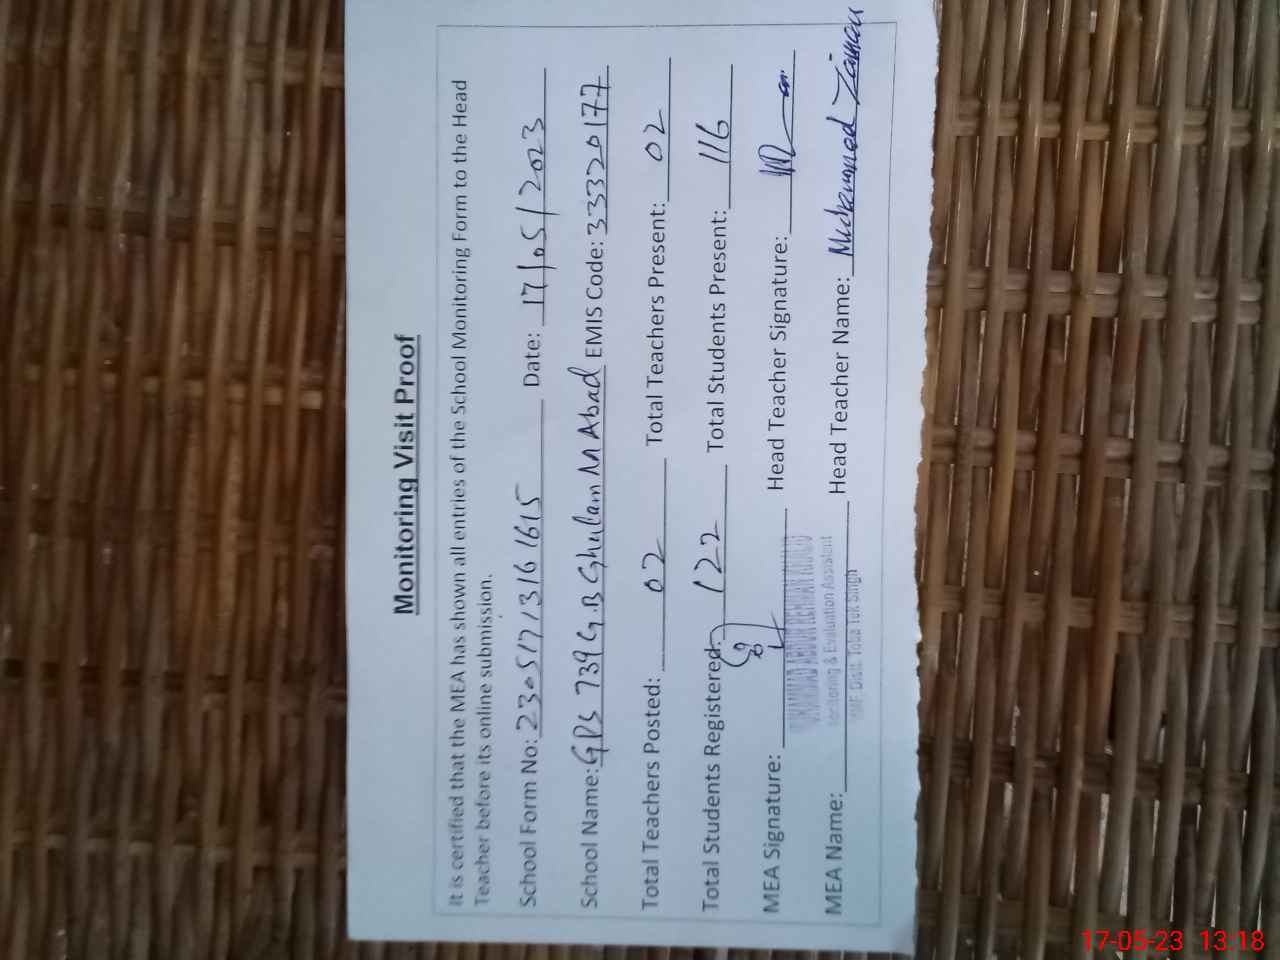 Monitoring Visit Proof
It is certified that the MEA has shown all entries of the School Monitoring Form to the Head
Teacher before its online submission.
School Form No: 23051713161615 Date: 17/05/2023
School Name: GPS 739 G.B Ghulam M Abad EMIS Code: 33320177
Total Teachers Posted: 02 Total Teachers Present: 02
Total Students Registered: 122 Total Students Present: 116
MEA Signature: Head Teacher Signature:
MUHAMMAD ABDUR REHMAN
Monitoring & Evaluation Assistant
MEA Name: Head Teacher Name: Muhammad Zaman
Distt. Toba Tek Singh
17-05-23 13:18